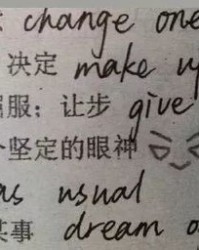 change one
决定 make u
服：让步 give
坚定的眼神
as usual
某事 dream o